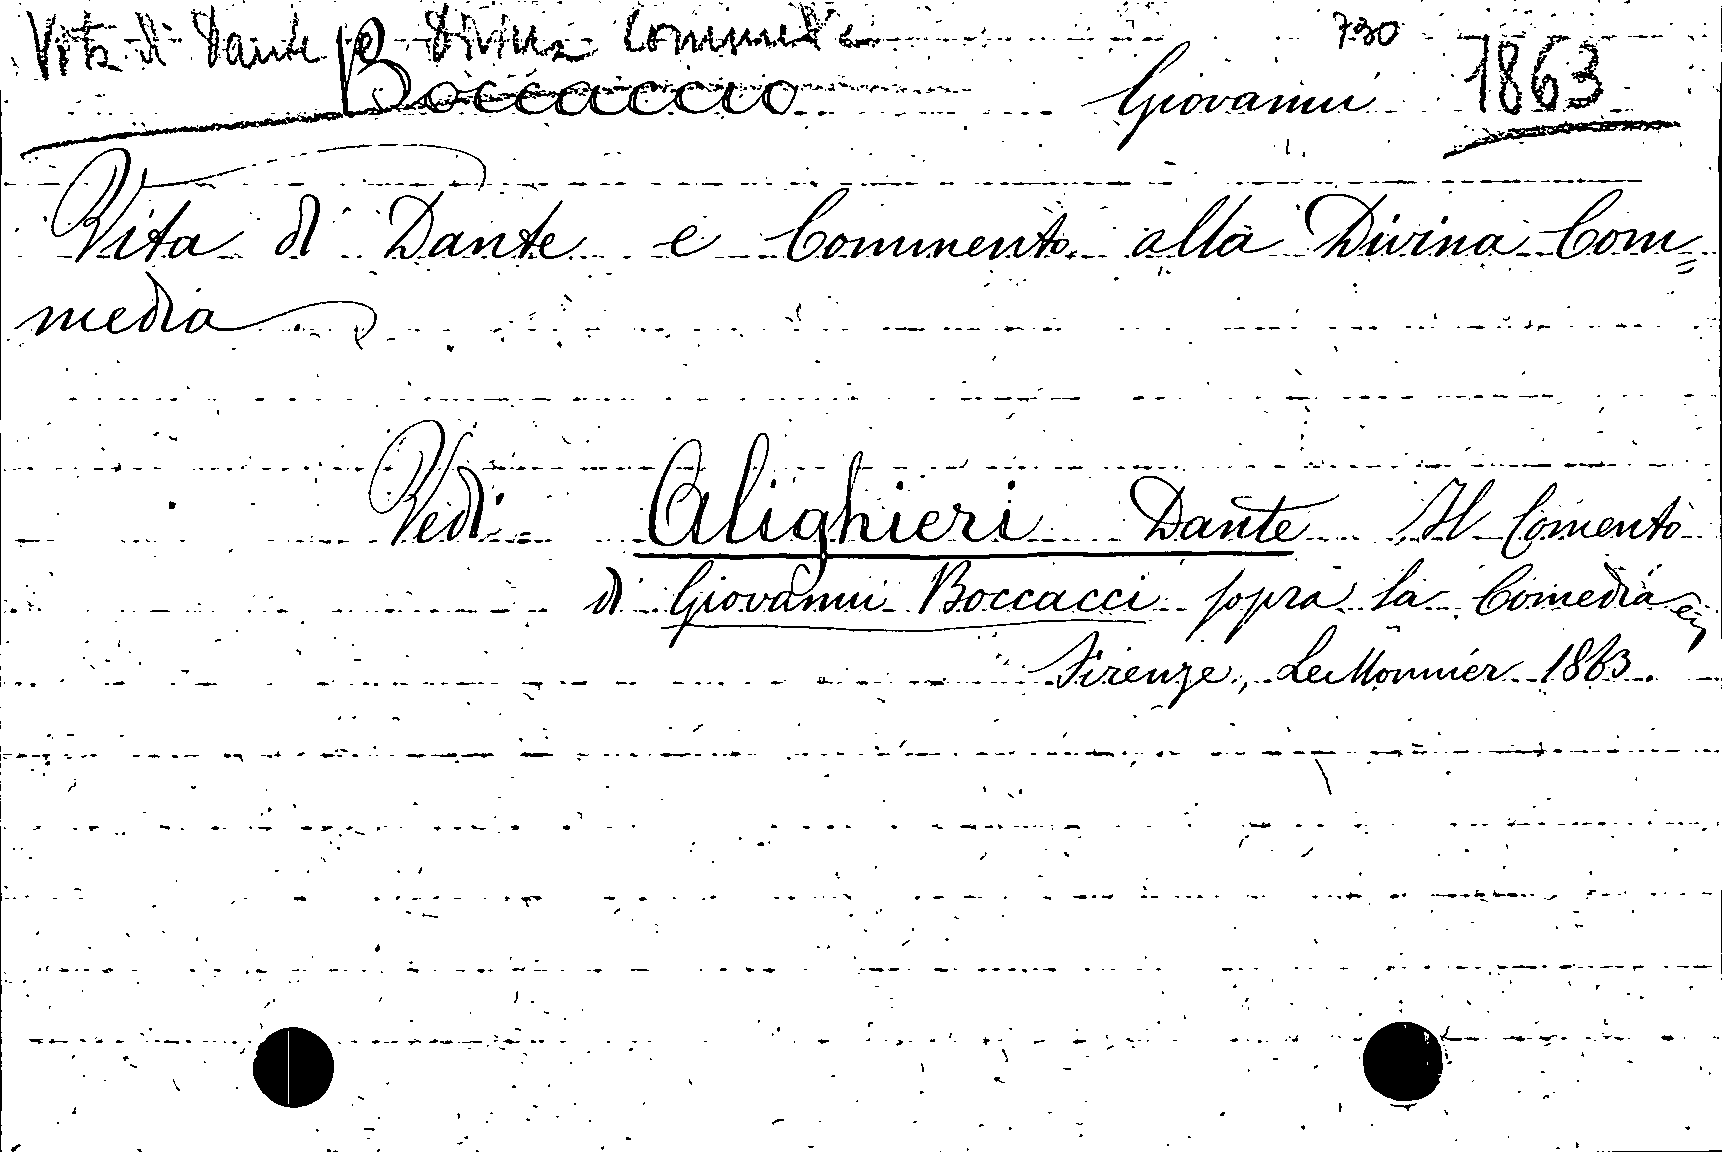 Vita di Dante e Divina Commedia 730
Boccaccio Giovanni 1863
Vita di Dante e Commento alla Divina Com=
media
Vedi Alighieri Dante Il Comento
di Giovanni Boccacci sopra la Comedia
Firenze, Le Monnier 1863.